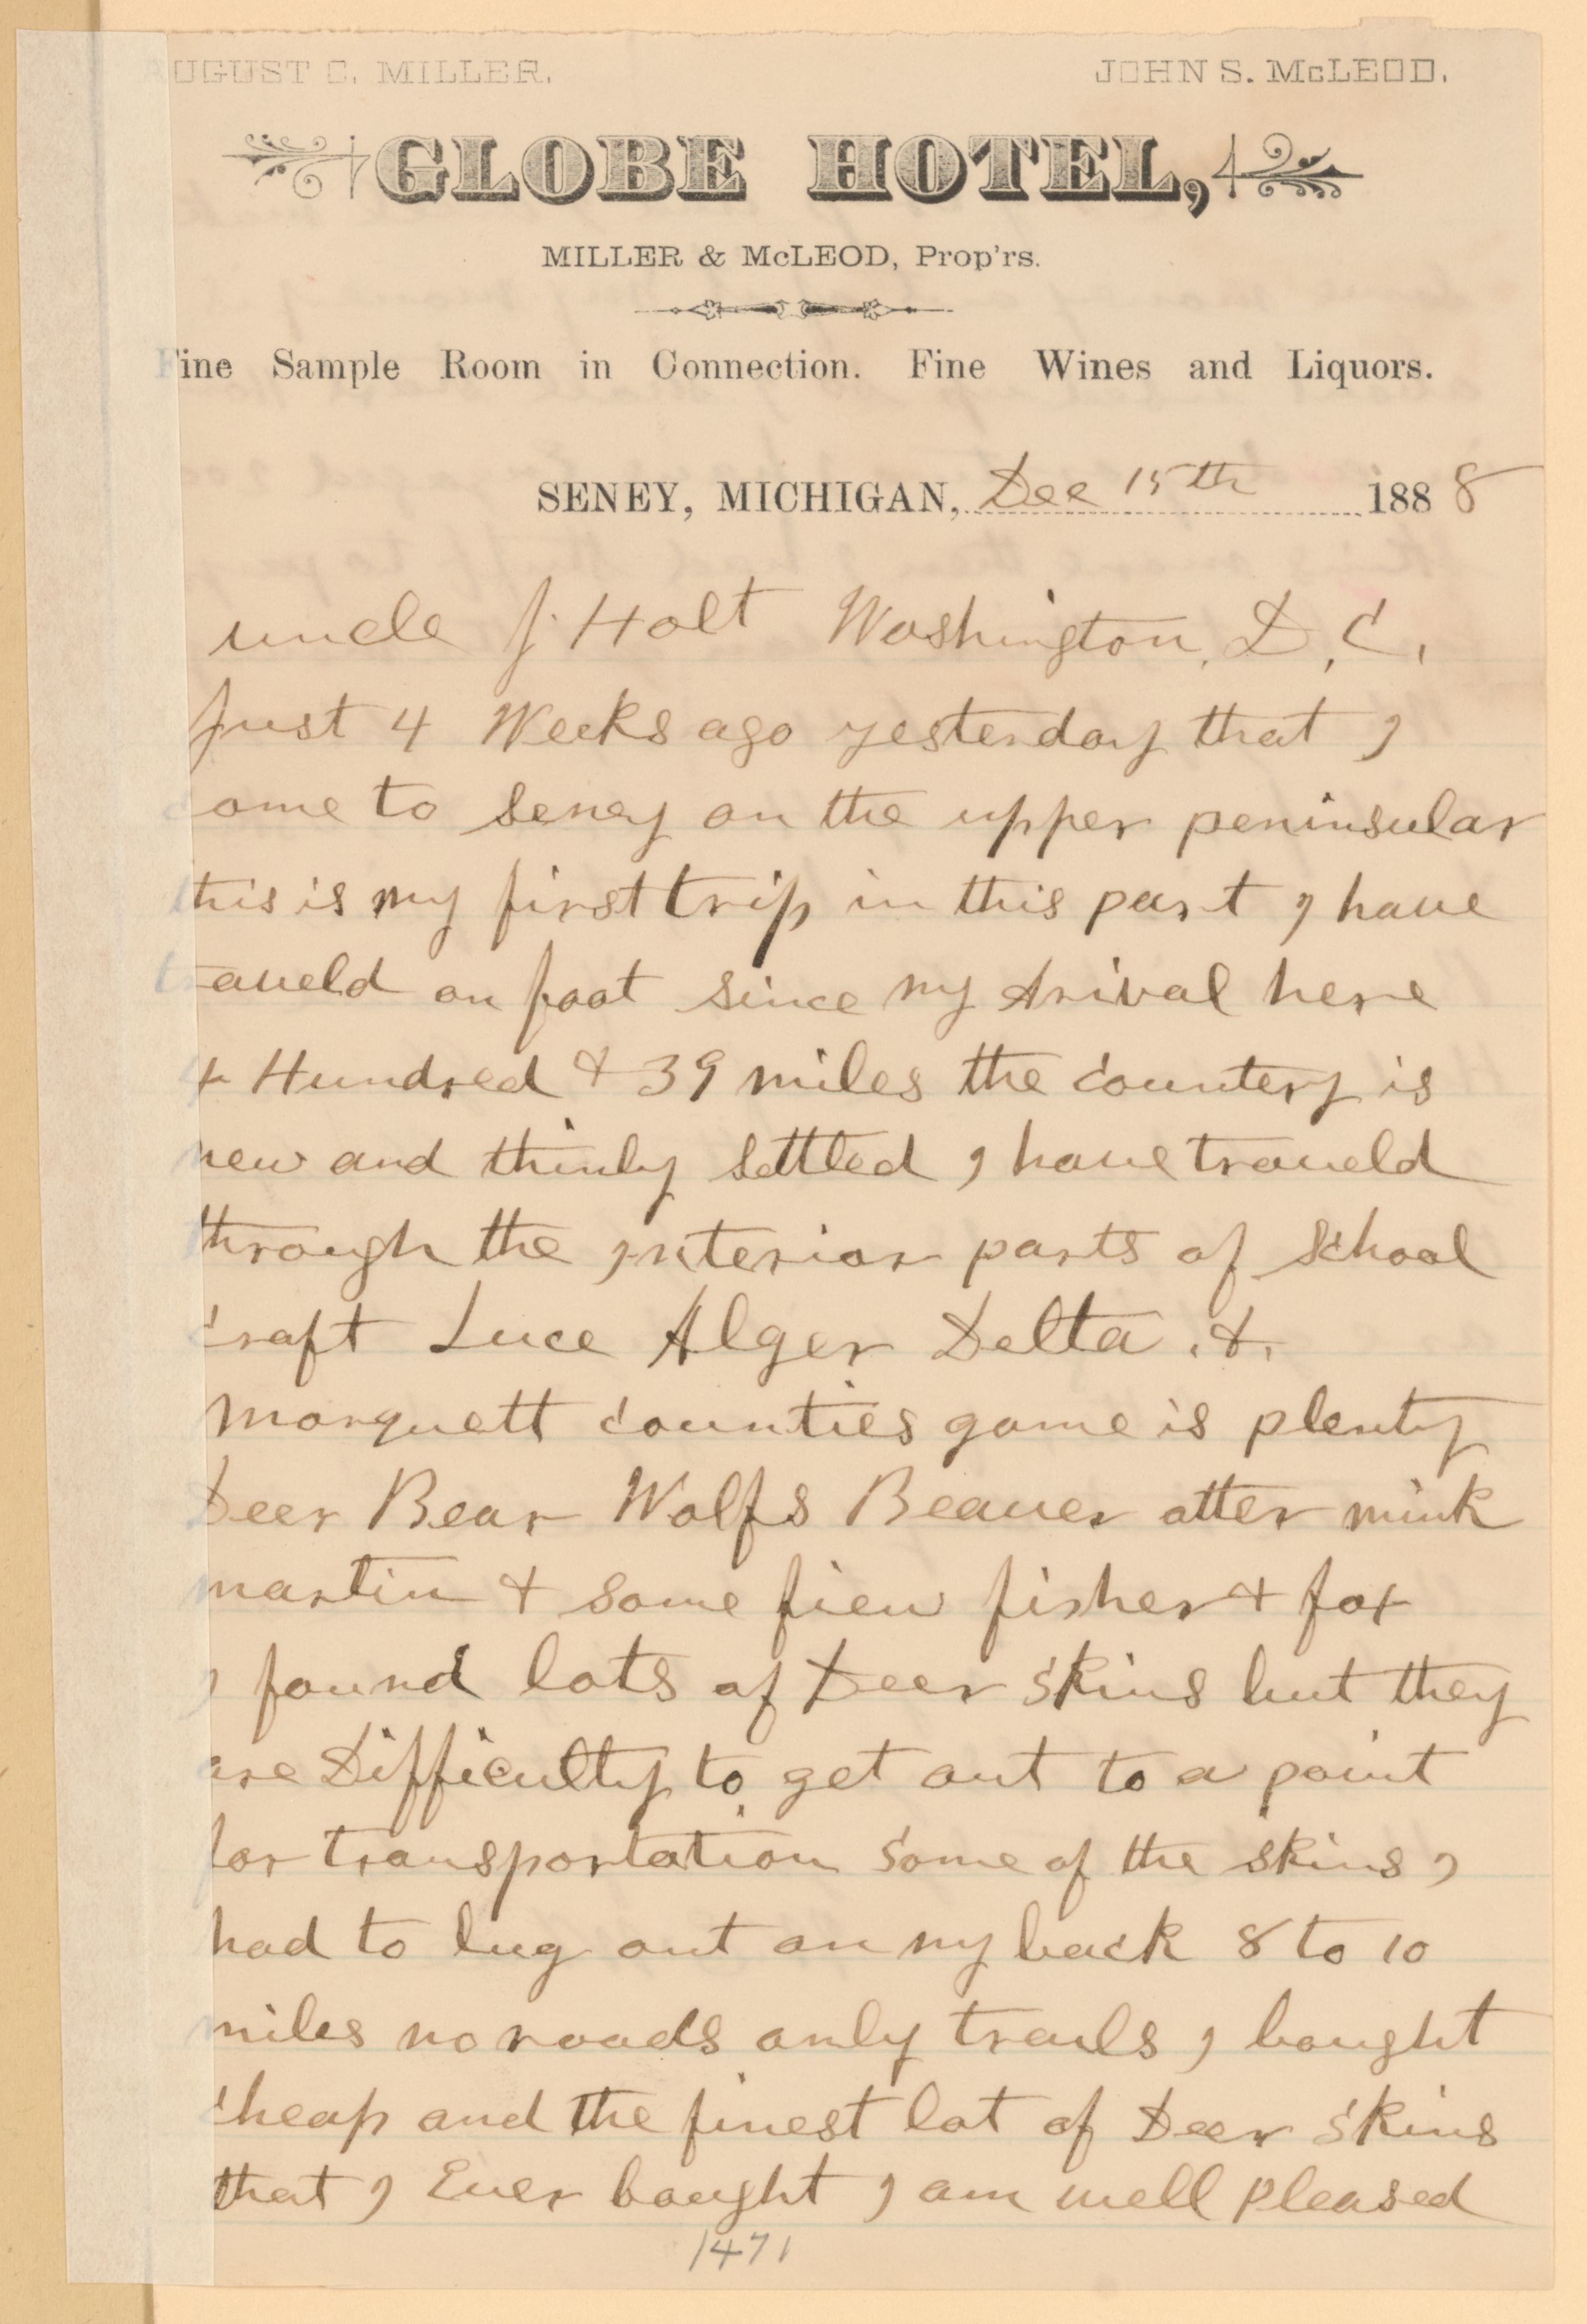 AUGUST C. MILLER. JOHN S. McLEOD.
GLOBE HOTEL,
MILLER & McLEOD, Prop'rs.
Fine Sample Room in Connection. Fine Wines and Liquors.
SENEY, MICHIGAN, Dec 15th 1888
uncle J. Holt Washington, D, C,
Just 4 Weeks ago yesterday that I
come to Seney on the upper peninsular
this is my first trip in this part I have
traveld on foot since my Arival here
4 Hundred & 39 miles the countery is
new and thinly settled I have traveld
through the Interior parts of School
craft Luce Alger Delta . & .
Marquett counties game is plenty
Deer Bear Wolfs Beaver otter mink
martin & some fiew fisher & fox
I found lots of Deer skins but they
are Difficulty to get out to a point
for transportation some of the skins I
had to lug out on my back 8 to 10
miles no roads only trails I bought
cheap and the finest lot of Deer skins
that I Ever bought I am well pleased
1471